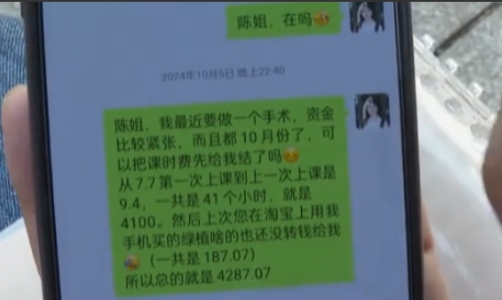 陈姐，在吗
2024年10月5日 晚上22:40
陈姐，我最近要做一个手术，资金
比较紧张，而且都10月份了，可
以把课时费先给我结了吗
从7.7第一次上课到上一次上课是
9.4，一共是41个小时，就是
4100。然后上次您在淘宝上用我
手机买的绿植啥的也还没转钱给我
（一共是187.07）
所以总的就是4287.07